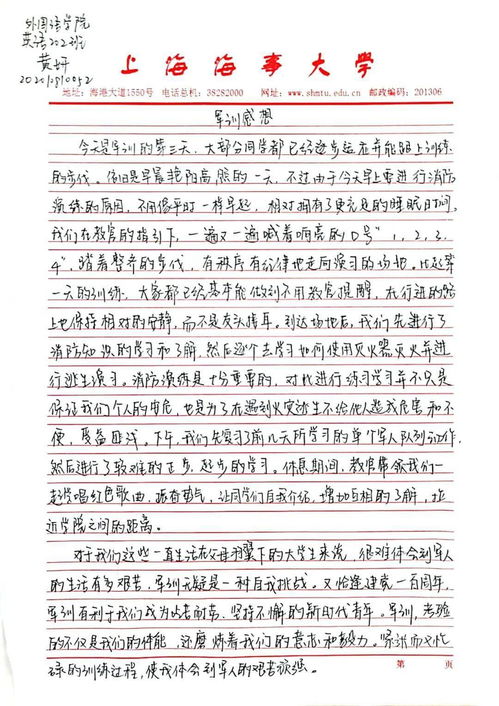 外国语学院
英语202班
黄妍
上海海事大学
地址：海港大道1550号 电话总机：38282000 网址：www.shmtu.edu.cn 邮政编码：201306
军训感想
今天是军训的第三天，大部分同学都已经逐步适应并能跟上训练
的步伐。依旧是早晨艳阳高照的一天，不过由于今天早上要进行消防
演练的原因，不用像平时一样早起，相对拥有了更充足的睡眠时间。
我们在教官的指引下，一遍又一遍喊着响亮的口号“1，2，3，
4”，踏着整齐的步伐，有秩序有纪律地走向演习的场地。比起第
一天的训练，大家都已经基本能做到不用教官提醒，在行进的路
上也保持相对的安静，而不是交头接耳。到达场地后，我们先进行了
消防知识的学习和了解，然后逐个去学习如何使用灭火器灭火并进
行逃生演习。消防演练是十分重要的，对此进行练习学习并不只是
保证我们个人的安危，也是为了在遇到火灾逃生不给他人造成危害和不
便，要备匪浅。下午，我们先复习了前几天所学习的单个军人队列动作，
然后进行了较难的正步、起步的学习。休息期间，教官带领我们一
起学唱红色歌曲，振奋勇气，让同学们自我介绍，增加互相的了解，拉
近学院之间的距离。
对于我们这些一直生活在父母羽翼下的大学生来说，很难体会到军人
的生活有多艰苦，军训无疑是一种自我挑战。又恰逢建党一百周年，
军训有利于我们成为吃苦耐劳、坚持不懈的新时代青年。军训，考验
的不仅是我们的体能，还磨炼着我们的意志和毅力。紧张而又忙
碌的训练过程，使我体会到军人的艰苦顽强。
第 页